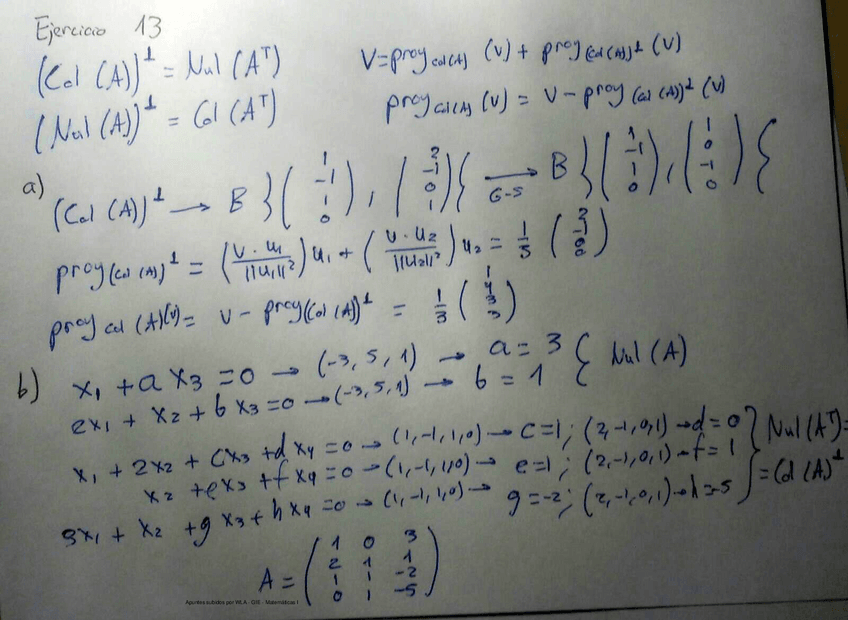 Ejercicio 13
(Col (A))^⊥ = Nul (A^T)
(Nul (A))^⊥ = Col (A^T)
V = proy_Col(A) (v) + proy_(Col(A))^⊥ (v)
proy_Col(A) (v) = v - proy_(Col(A))^⊥ (v)
a) (Col (A))^⊥ → B } ( 1 -1 1 0 ) , ( 2 -1 0 1 ) { →_G-S B } ( 1 -1 1 0 ) , ( 1 0 -1 0 ) {
proy_(Col (A))^⊥ = ( v · u1 / ||u1||² ) u1 + ( v · u2 / ||u2||² ) u2 = 1/3
proy_Col (A)(v) = v - proy_(Col (A))^⊥ = 1/3 ( 1 4 3 3 )
b) x1 + a x3 = 0 → (-3, 5, 1) → a = 3 { Nul (A)
2x1 + x2 + b x3 = 0 → (-3, 5, 1) → b = 1
x1 + 2x2 + c x3 + d x4 = 0 → (1, -1, 1, 0) → c = 1 ; (2, -1, 0, 1) → d = 0 } Nul (A^T) =
x2 + e x3 + f x4 = 0 → (1, -1, 1, 0) → e = 1 ; (2, -1, 0, 1) → f = 1
3x1 + x2 + g x3 + h x4 = 0 → (1, -1, 1, 0) → g = -2 ; (2, -1, 0, 1) → h = -5
= Col (A)^⊥
A = ( 1 0 3
2 1 1
1 1 -2
0 1 -5 )
Apuntes subidos por WLA - GIIS - Matemáticas I